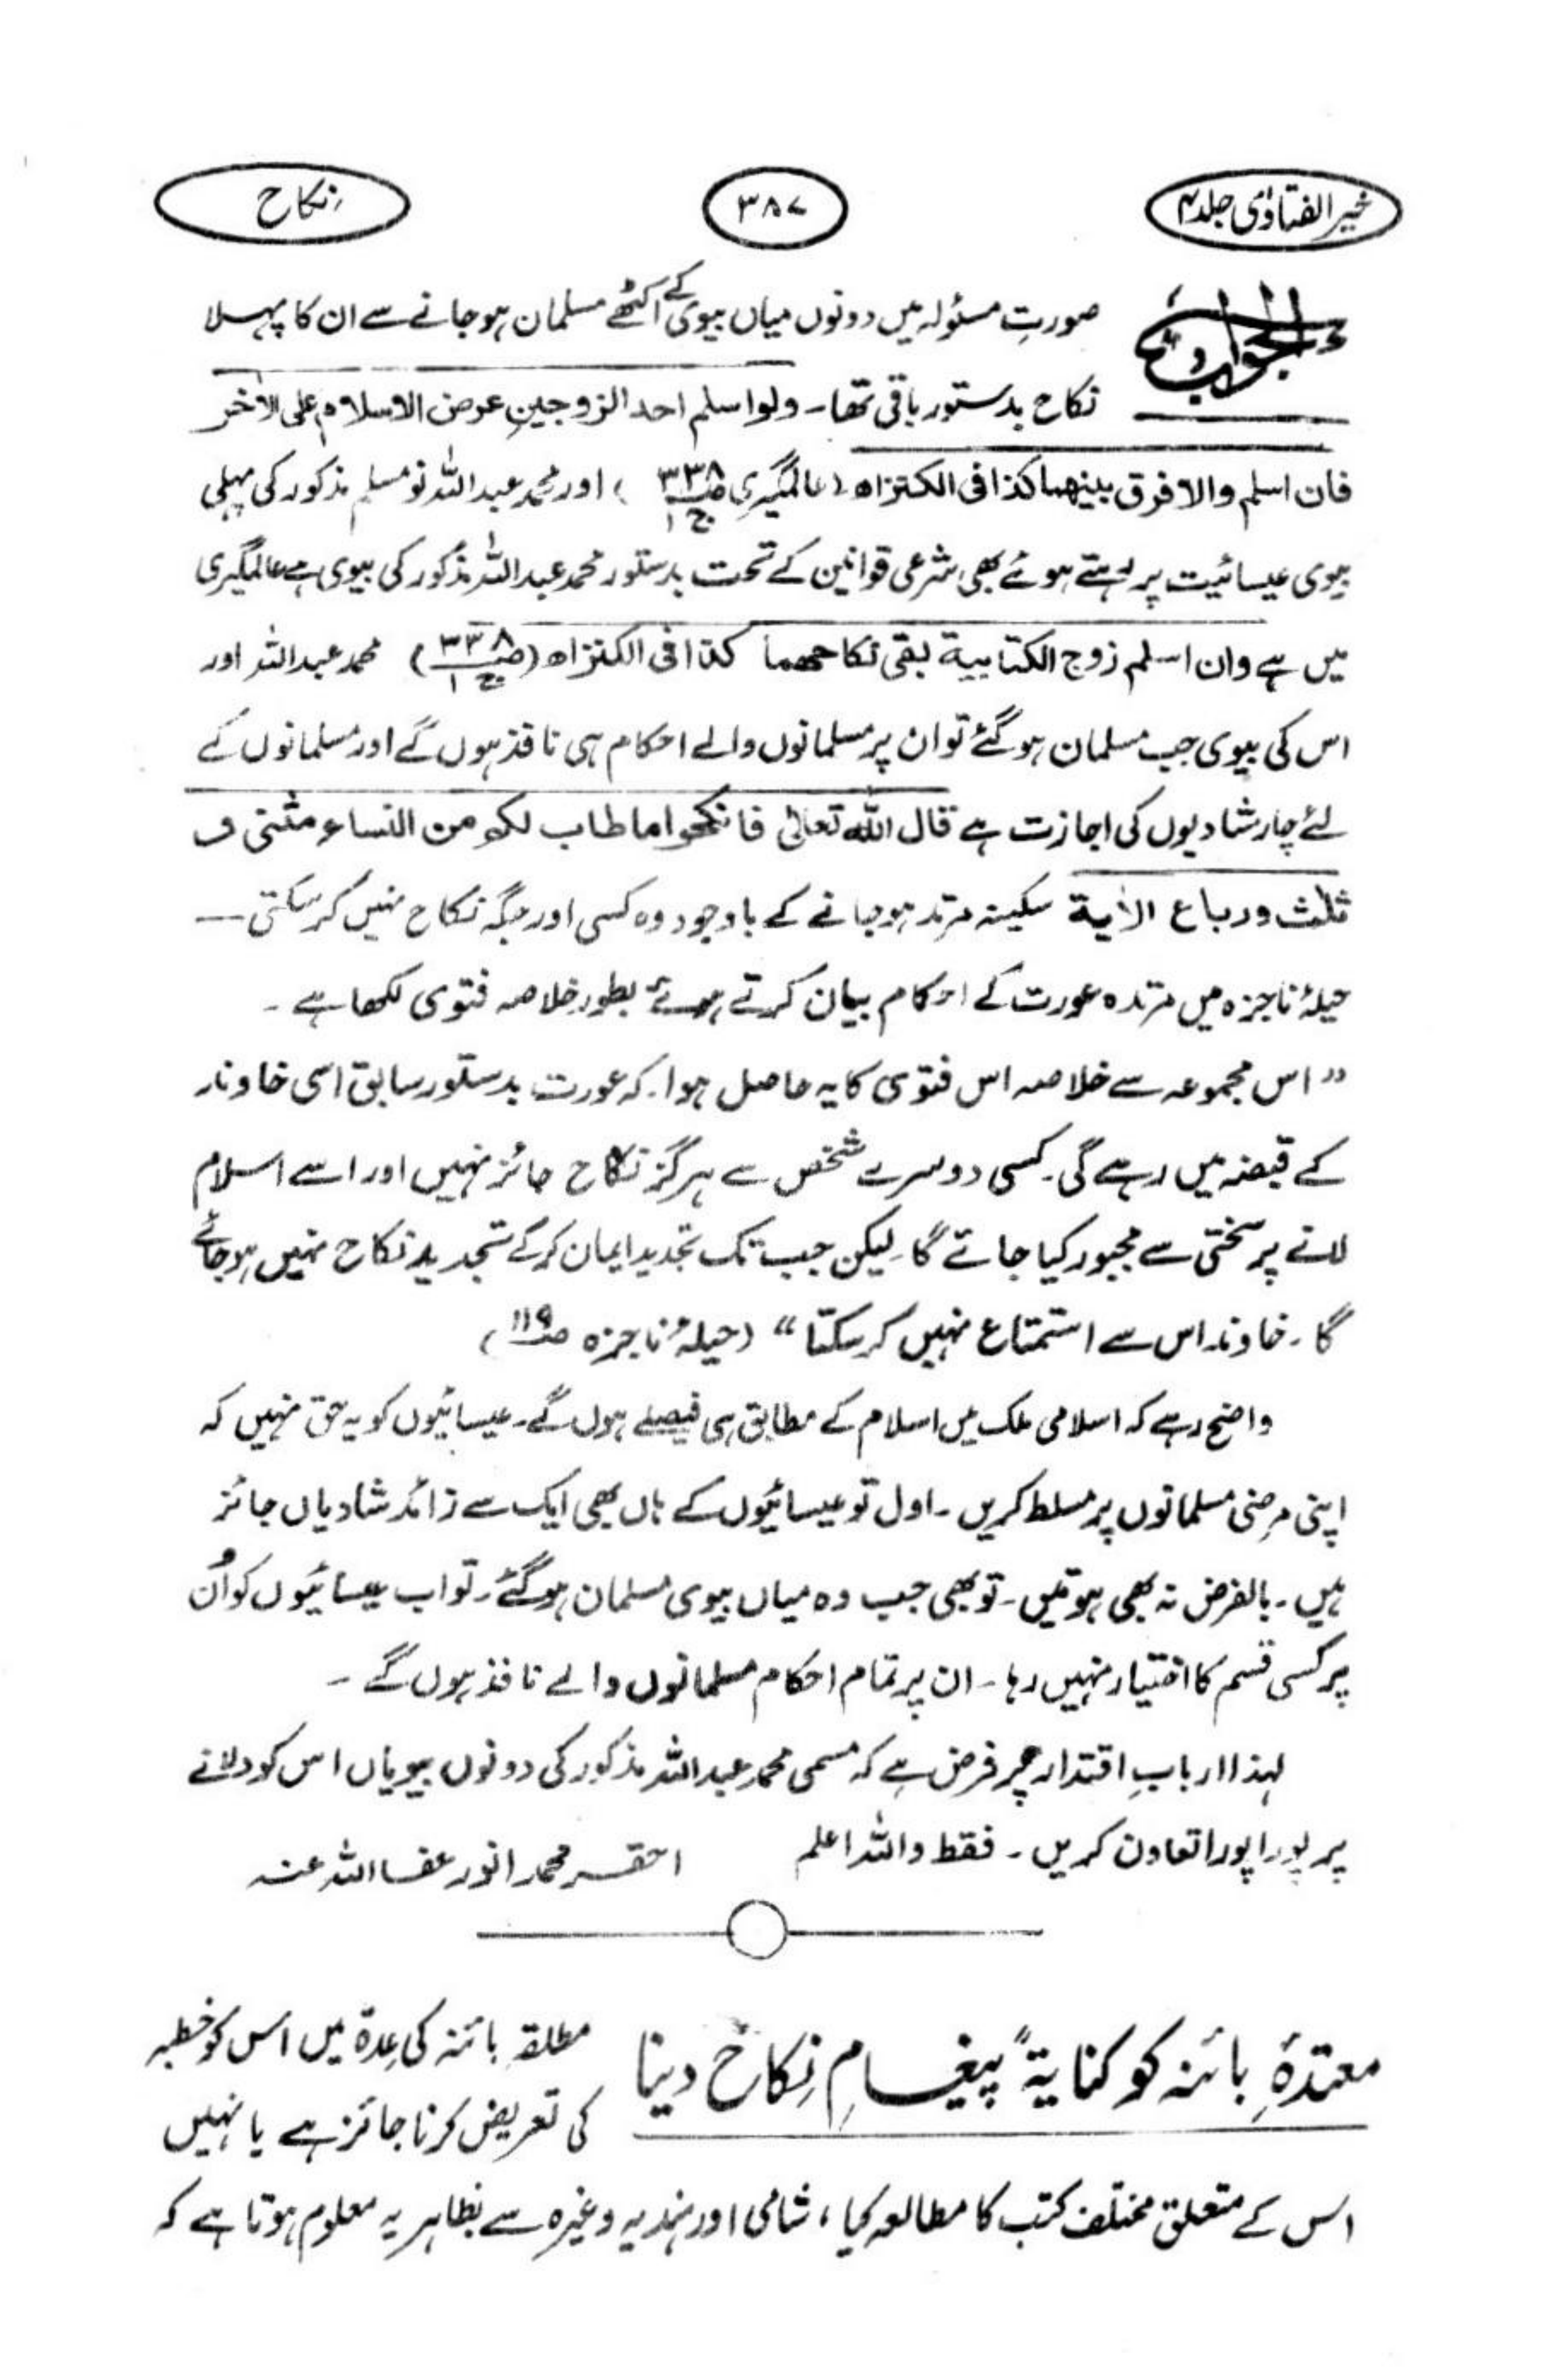 خیر الفتاویٰ جلد ۴
۳۸۷
نکاح
الجواب
صورتِ مسئولہ میں دونوں میاں بیوی کے اکٹھے مسلمان ہوجانے سے ان کا پہلا
نکاح بدستور باقی تھا۔ ولو اسلم احد الزوجین عرض الاسلام علی الاٰخر
فان اسلم والا فرق بینھما کذا فی الکنز اھ (عالمگیری ص۳۳۸ ج۱) اور محمد عبداللہ نومسلم مذکور کی پہلی
بیوی عیسائیت پر رہتے ہوئے بھی شرعی قوانین کے تحت بدستور محمد عبداللہ مذکور کی بیوی ہے عالمگیری
میں ہے وان اسلم زوج الکتابیۃ بقی نکاحھما کذا فی الکنز اھ (ص۳۳۸ ج۱) محمد عبداللہ اور
اس کی بیوی جب مسلمان ہوگئے تو ان پر مسلمانوں والے احکام ہی نافذ ہوں گے اور مسلمانوں کے
لئے چار شادیوں کی اجازت ہے قال اللہ تعالیٰ فانکحوا ما طاب لکم من النساء مثنی و
ثلٰث ورباع الاٰیۃ سکینہ مرتد ہوجانے کے باوجود وہ کسی اور جگہ نکاح نہیں کرسکتی ــ
حیلۂ ناجزہ میں مرتدہ عورت کے احکام بیان کرتے ہوئے بطور خلاصہ فتوی لکھا ہے ۔
”اس مجموعہ سے خلاصہ اس فتوی کا یہ حاصل ہوا۔ کہ عورت بدستور سابق اسی خاوند
کے قبضہ میں رہے گی۔ کسی دوسرے شخص سے ہرگز نکاح جائز نہیں اور اسے اسلام
لانے پر سختی سے مجبور کیا جائے گا۔ لیکن جب تک تجدید ایمان کرکے تجدید نکاح نہیں ہوجائے
گا۔ خاوند اس سے استمتاع نہیں کرسکتا“ (حیلۂ ناجزہ ص۱۱۹)
واضح رہے کہ اسلامی ملک میں اسلام کے مطابق ہی فیصلے ہوں گے۔ عیسائیوں کو یہ حق نہیں کہ
اپنی مرضی مسلمانوں پر مسلط کریں۔ اول تو عیسائیوں کے ہاں بھی ایک سے زائد شادیاں جائز
ہیں۔ بالفرض نہ بھی ہوتیں۔ تو بھی جب وہ میاں بیوی مسلمان ہوگئے۔ تو اب عیسائیوں کو اُن
پر کسی قسم کا اختیار نہیں رہا۔ ان پر تمام احکام مسلمانوں والے نافذ ہوں گے ۔
لہذا اربابِ اقتدار پر فرض ہے کہ مسمی محمد عبداللہ مذکور کی دونوں بیویاں اس کو دلانے
پر پورا پورا تعاون کریں۔ فقط واللہ اعلم
احقر محمد انور عفا اللہ عنہ
معتدۂ بائنہ کو کنایۃً پیغامِ نکاح دینا
مطلقہ بائنہ کی عِدۃ میں اس کو خطبہ
کی تعریض کرنا جائز ہے یا نہیں
اس کے متعلق مختلف کتب کا مطالعہ کیا، شامی اور ہندیہ وغیرہ سے بظاہر یہ معلوم ہوتا ہے کہ